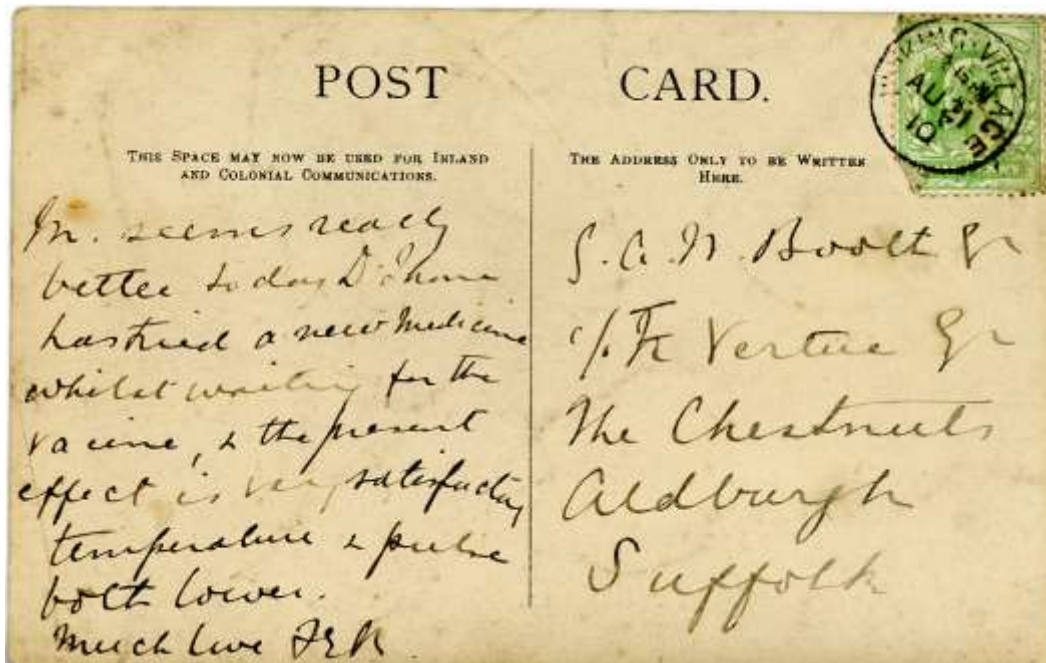 POST CARD.
THIS SPACE MAY NOW BE USED FOR INLAND
AND COLONIAL COMMUNICATIONS.
M. seems really
better today Dr Thorne
has tried a new medicine
whilst waiting for the
vacine, & the present
effect is very satisfactory
temperature & pulse
both lower.
Much love
THE ADDRESS ONLY TO BE WRITTEN
HERE.
Booth Esqr
c/o Vertue Esqr
The Chestnuts
Aldburgh
Suffolk
VILLAGE
AU 21
10